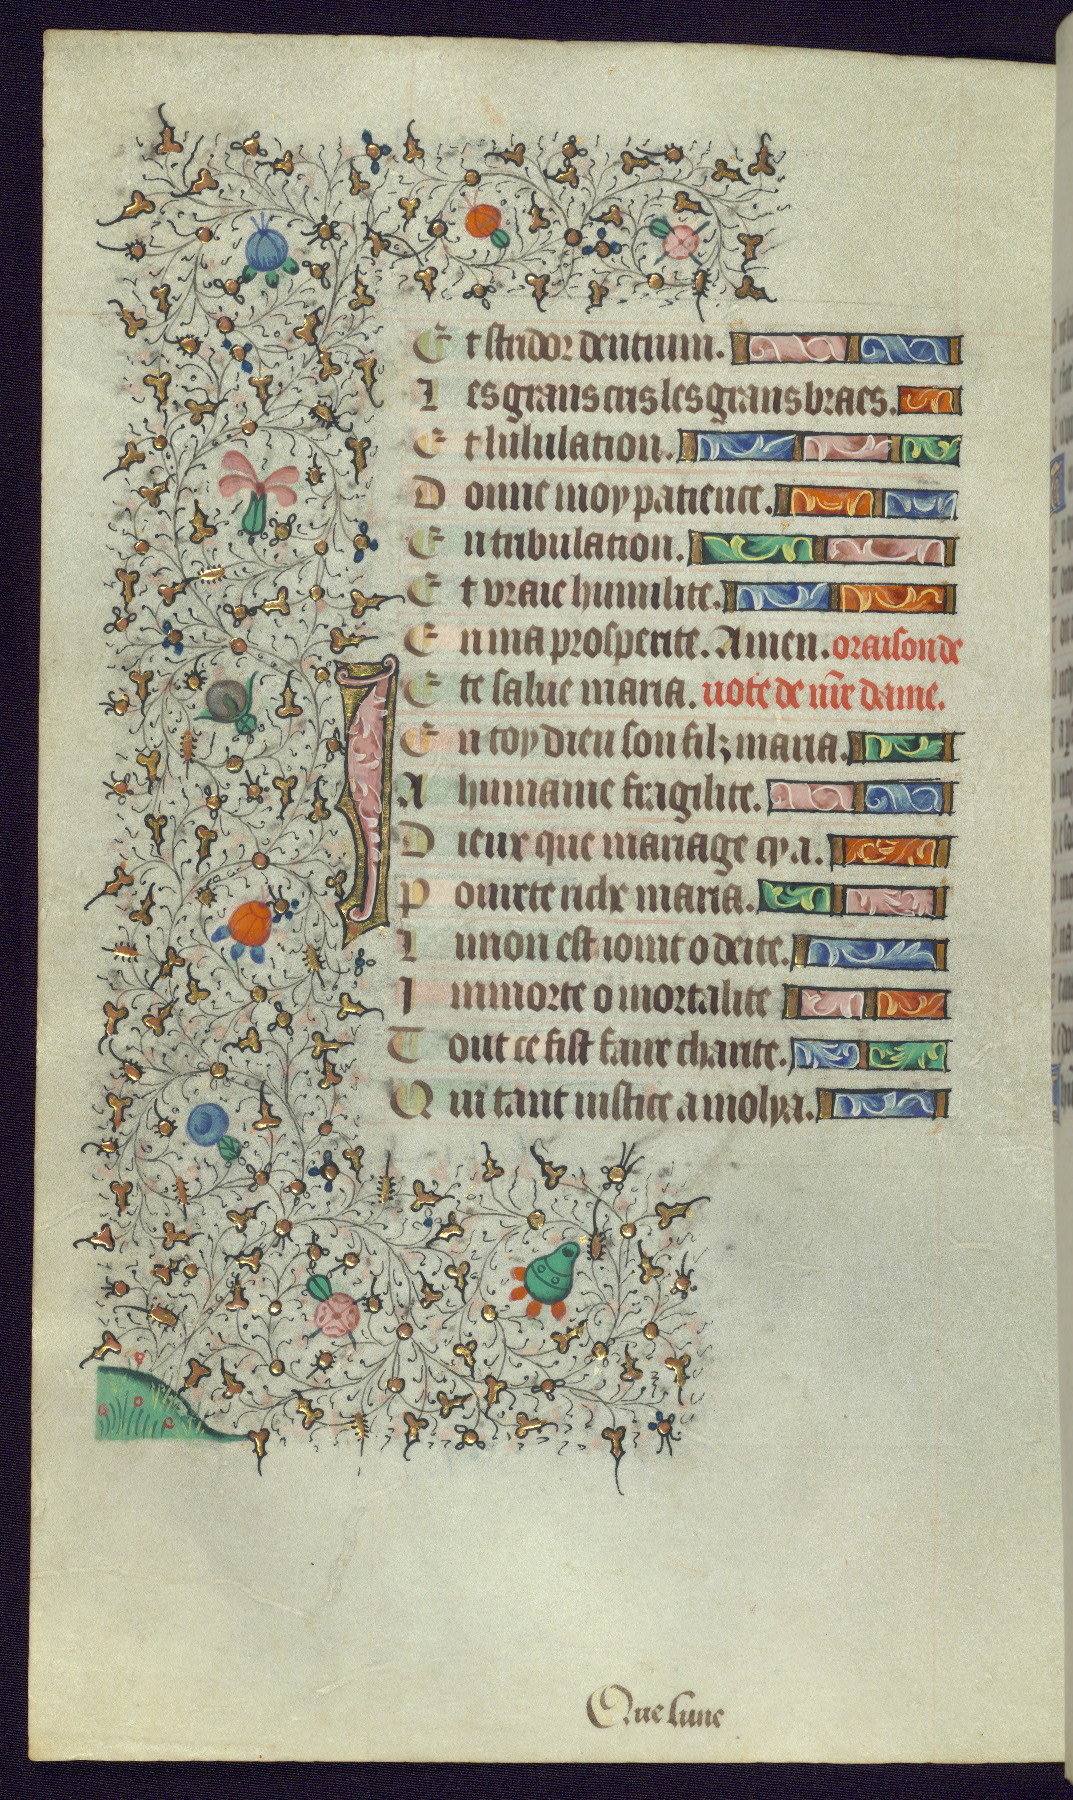 Et stridor dentium.
Les grans cris les grans braes.
Et lululation.
Donne moy patience.
En tribulation.
Et vraie humilite.
En ma prosperite. Amen. oraison de
Ie te salue maria. uote de nr̃e dame.
En toy dieu son filz maria.
A humaine fragilite.
Dieux que mariage cy a.
Pourete riche maria.
Lun on est ioint o deite.
Immorte o mortalite
Tout ce fist faire charite.
Qui tant iustice amolya.
Que lune